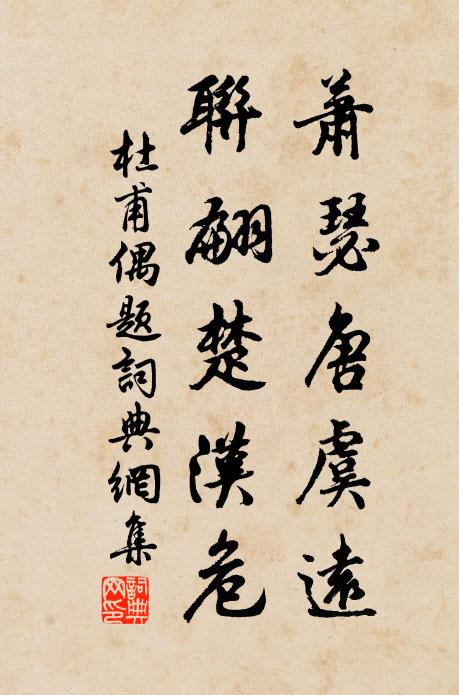 蕭瑟唐虞遠
聯翩楚漢危
杜甫偶題詞典網集
詞典
网印